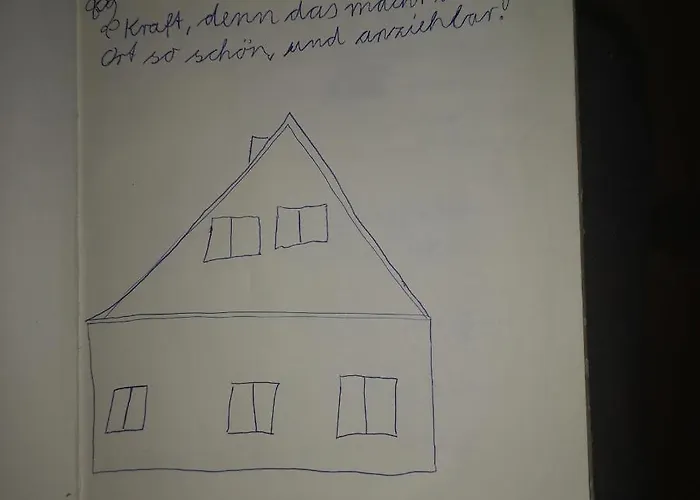 Kraft, denn das macht
Ort so schön, und anziehbar!